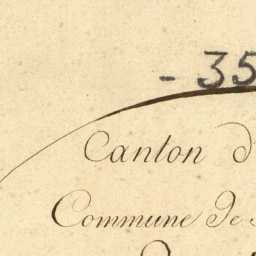 - 35
Canton d
Commune de